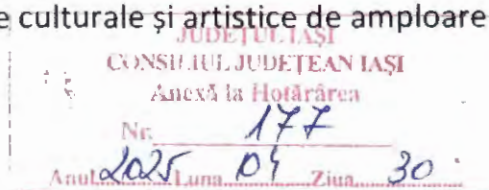 e culturale și artistice de amploare
JUDEȚUL IAȘI
CONSILIUL JUDEȚEAN IAȘI
Anexă la Hotărârea
Nr. 177
Anul 2025 Luna 04 Ziua 30